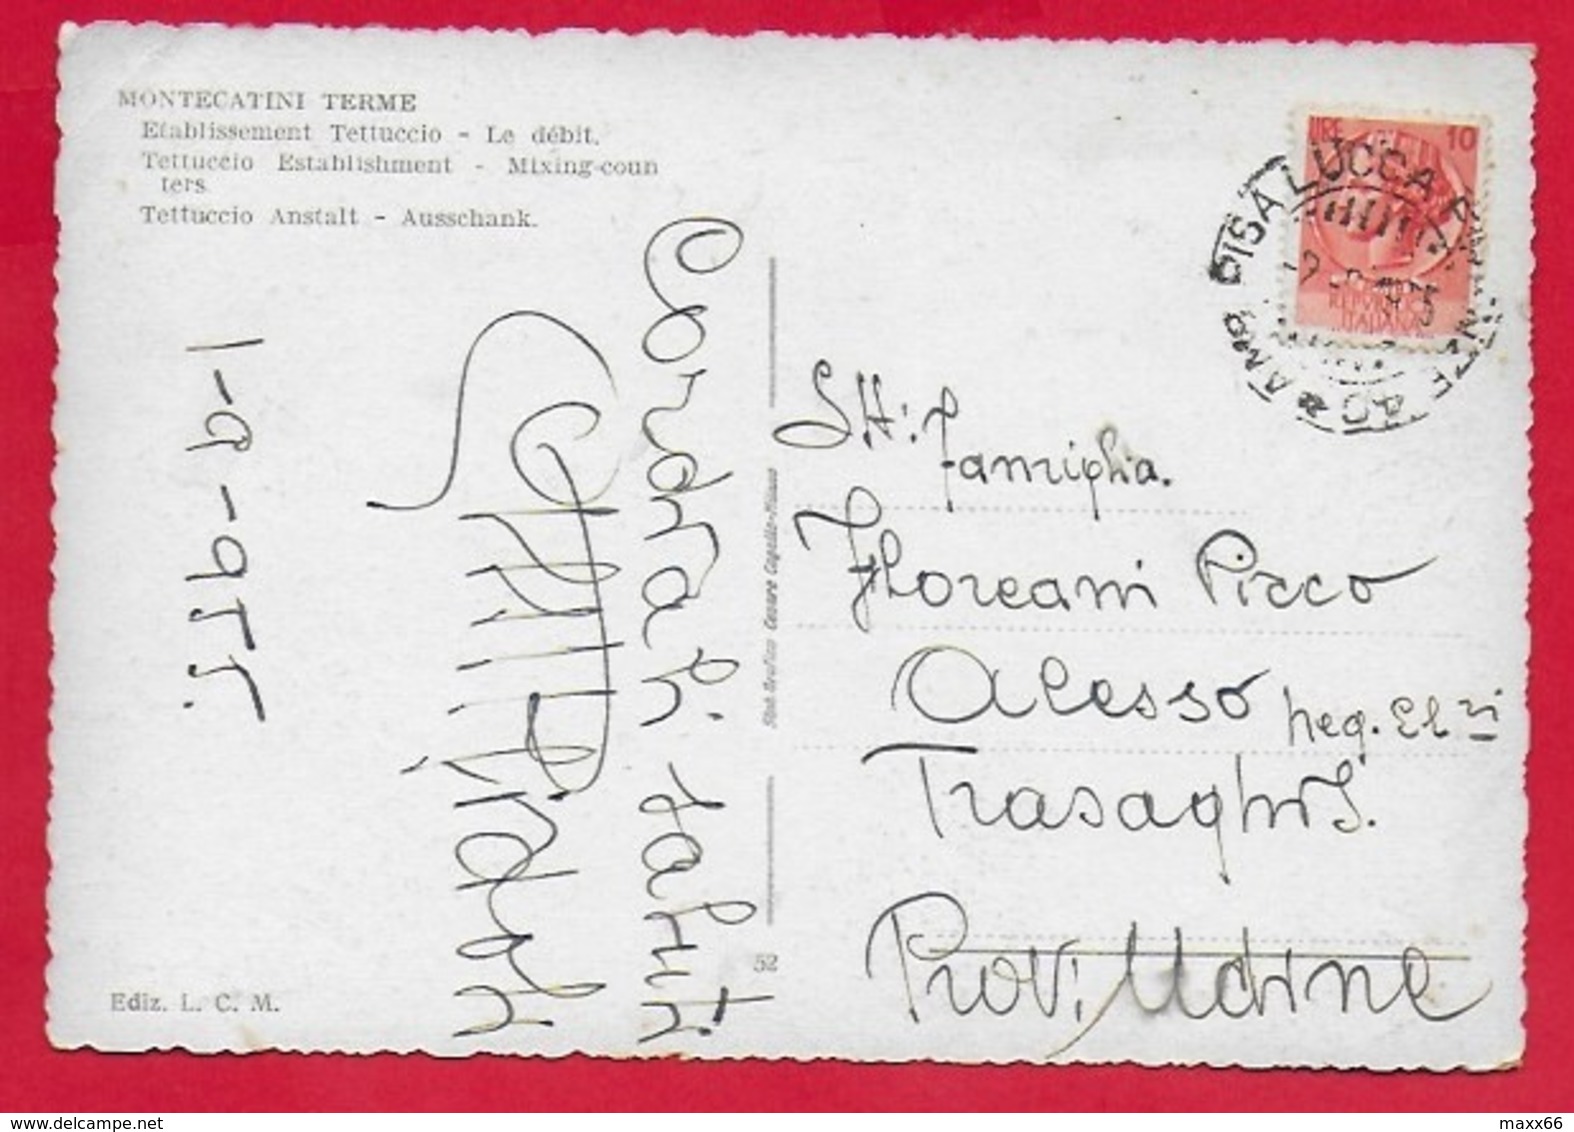 MONTECATINI TERME
Etablissement Tettuccio - Le débit.
Tettuccio Establishment - Mixing-coun
ters
Tettuccio Anstalt - Ausschank.
1-9-955.
Cordiali saluti
Stab. Grafico Cesare Capello-Milano
52
Ediz. L. C. M.
LIRE 10
REPVBBLICA
ITALIANA
AMB. PISA LUCCA FIRENZE
Famiglia.
Floreani Pirco
Alesso neg. El
Trasaghis.
Prov. Udine
maxx66